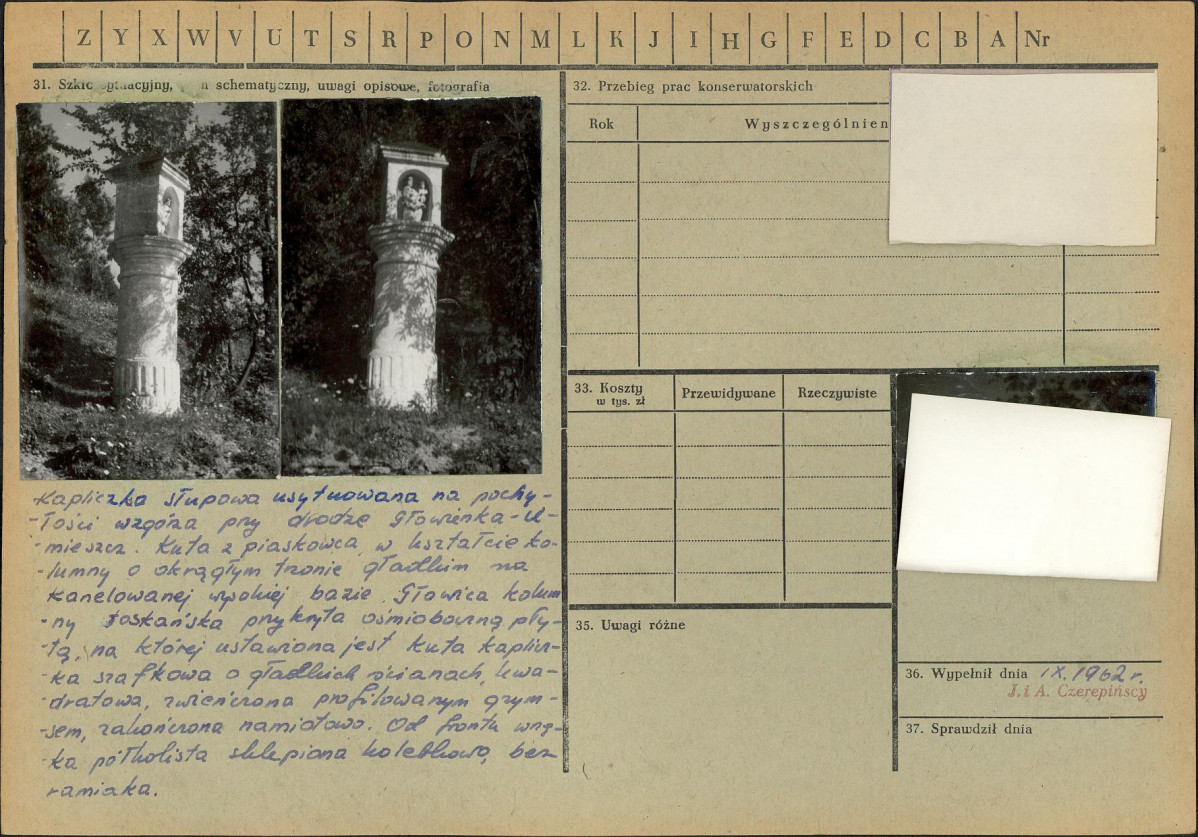 Z Y X W V U T S R P O N M L K J I H G F E D C B A Nr
31. Szkic sytuacyjny, schematyczny, uwagi opisowe, fotografia
Kapliczka słupowa usytuowana na pochy-
-łości wzgórza przy drodze Głowienka-U-
-mieszcz. Kuta z piaskowca, w kształcie ko-
-lumny o okrągłym trzonie gładkim na
kanelowanej wysokiej bazie. Głowica kolum
-ny toskańska przykryta ośmioboczną pły-
-tą, na której ustawiona jest kuta kaplicz-
-ka szafkowa o gładkich ścianach, kwa-
-dratowa, zwieńczona profilowanym gzym-
-sem, zakończona namiotowo. Od frontu wnę-
-ka półkolista sklepiona kolebkowo, bez
ramiaka.
32. Przebieg prac konserwatorskich
Rok Wyszczególnien
33. Koszty w tys. zł Przewidywane Rzeczywiste
35. Uwagi różne
36. Wypełnił dnia IX. 1962 r.
J. i A. Czerepińscy
37. Sprawdził dnia